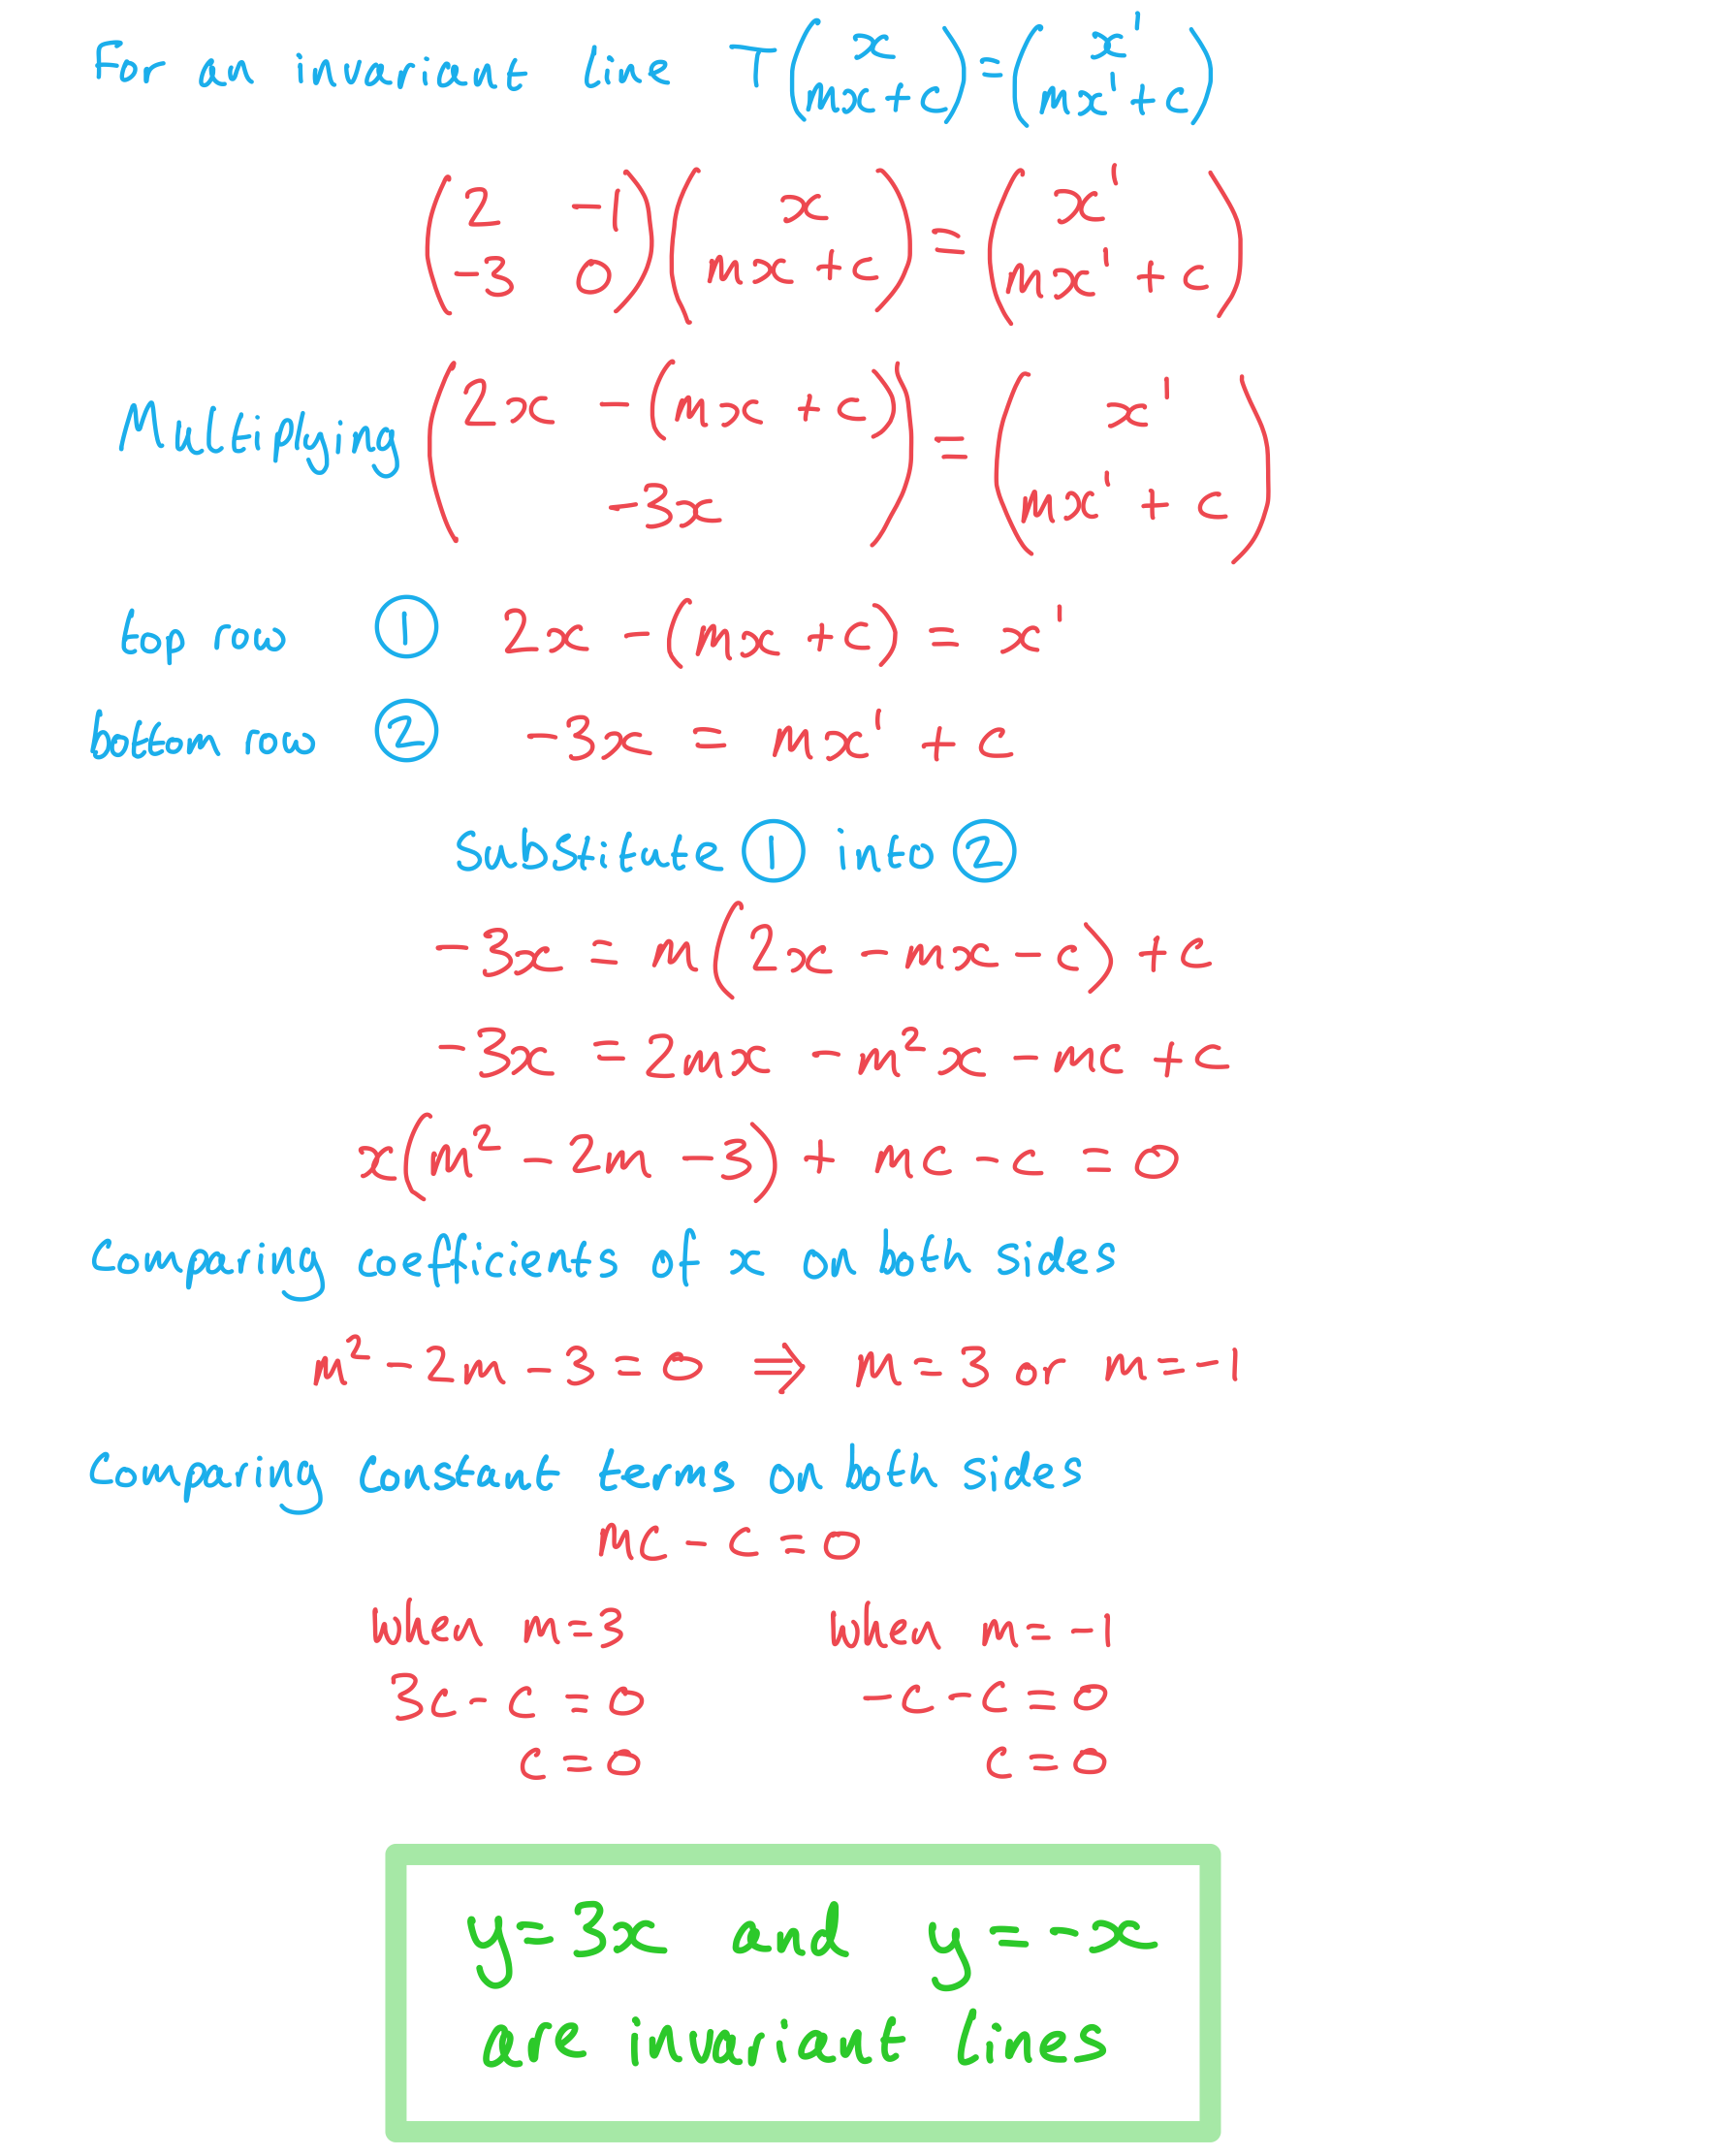 For an invariant line T(x mx+c) = (x' mx'+c)
(2 -1 -3 0)(x mx+c) = (x' mx'+c)
Multiplying (2x - (mx+c) -3x) = (x' mx'+c)
top row ① 2x - (mx+c) = x'
bottom row ② -3x = mx' + c
Substitute ① into ②
-3x = m(2x - mx - c) + c
-3x = 2mx - m²x - mc + c
x(m² - 2m - 3) + mc - c = 0
Comparing coefficients of x on both sides
m² - 2m - 3 = 0 ⇒ m = 3 or m = -1
Comparing constant terms on both sides
mc - c = 0
When m=3 When m=-1
3c - c = 0 -c - c = 0
c = 0 c = 0
y=3x and y=-x
are invariant lines